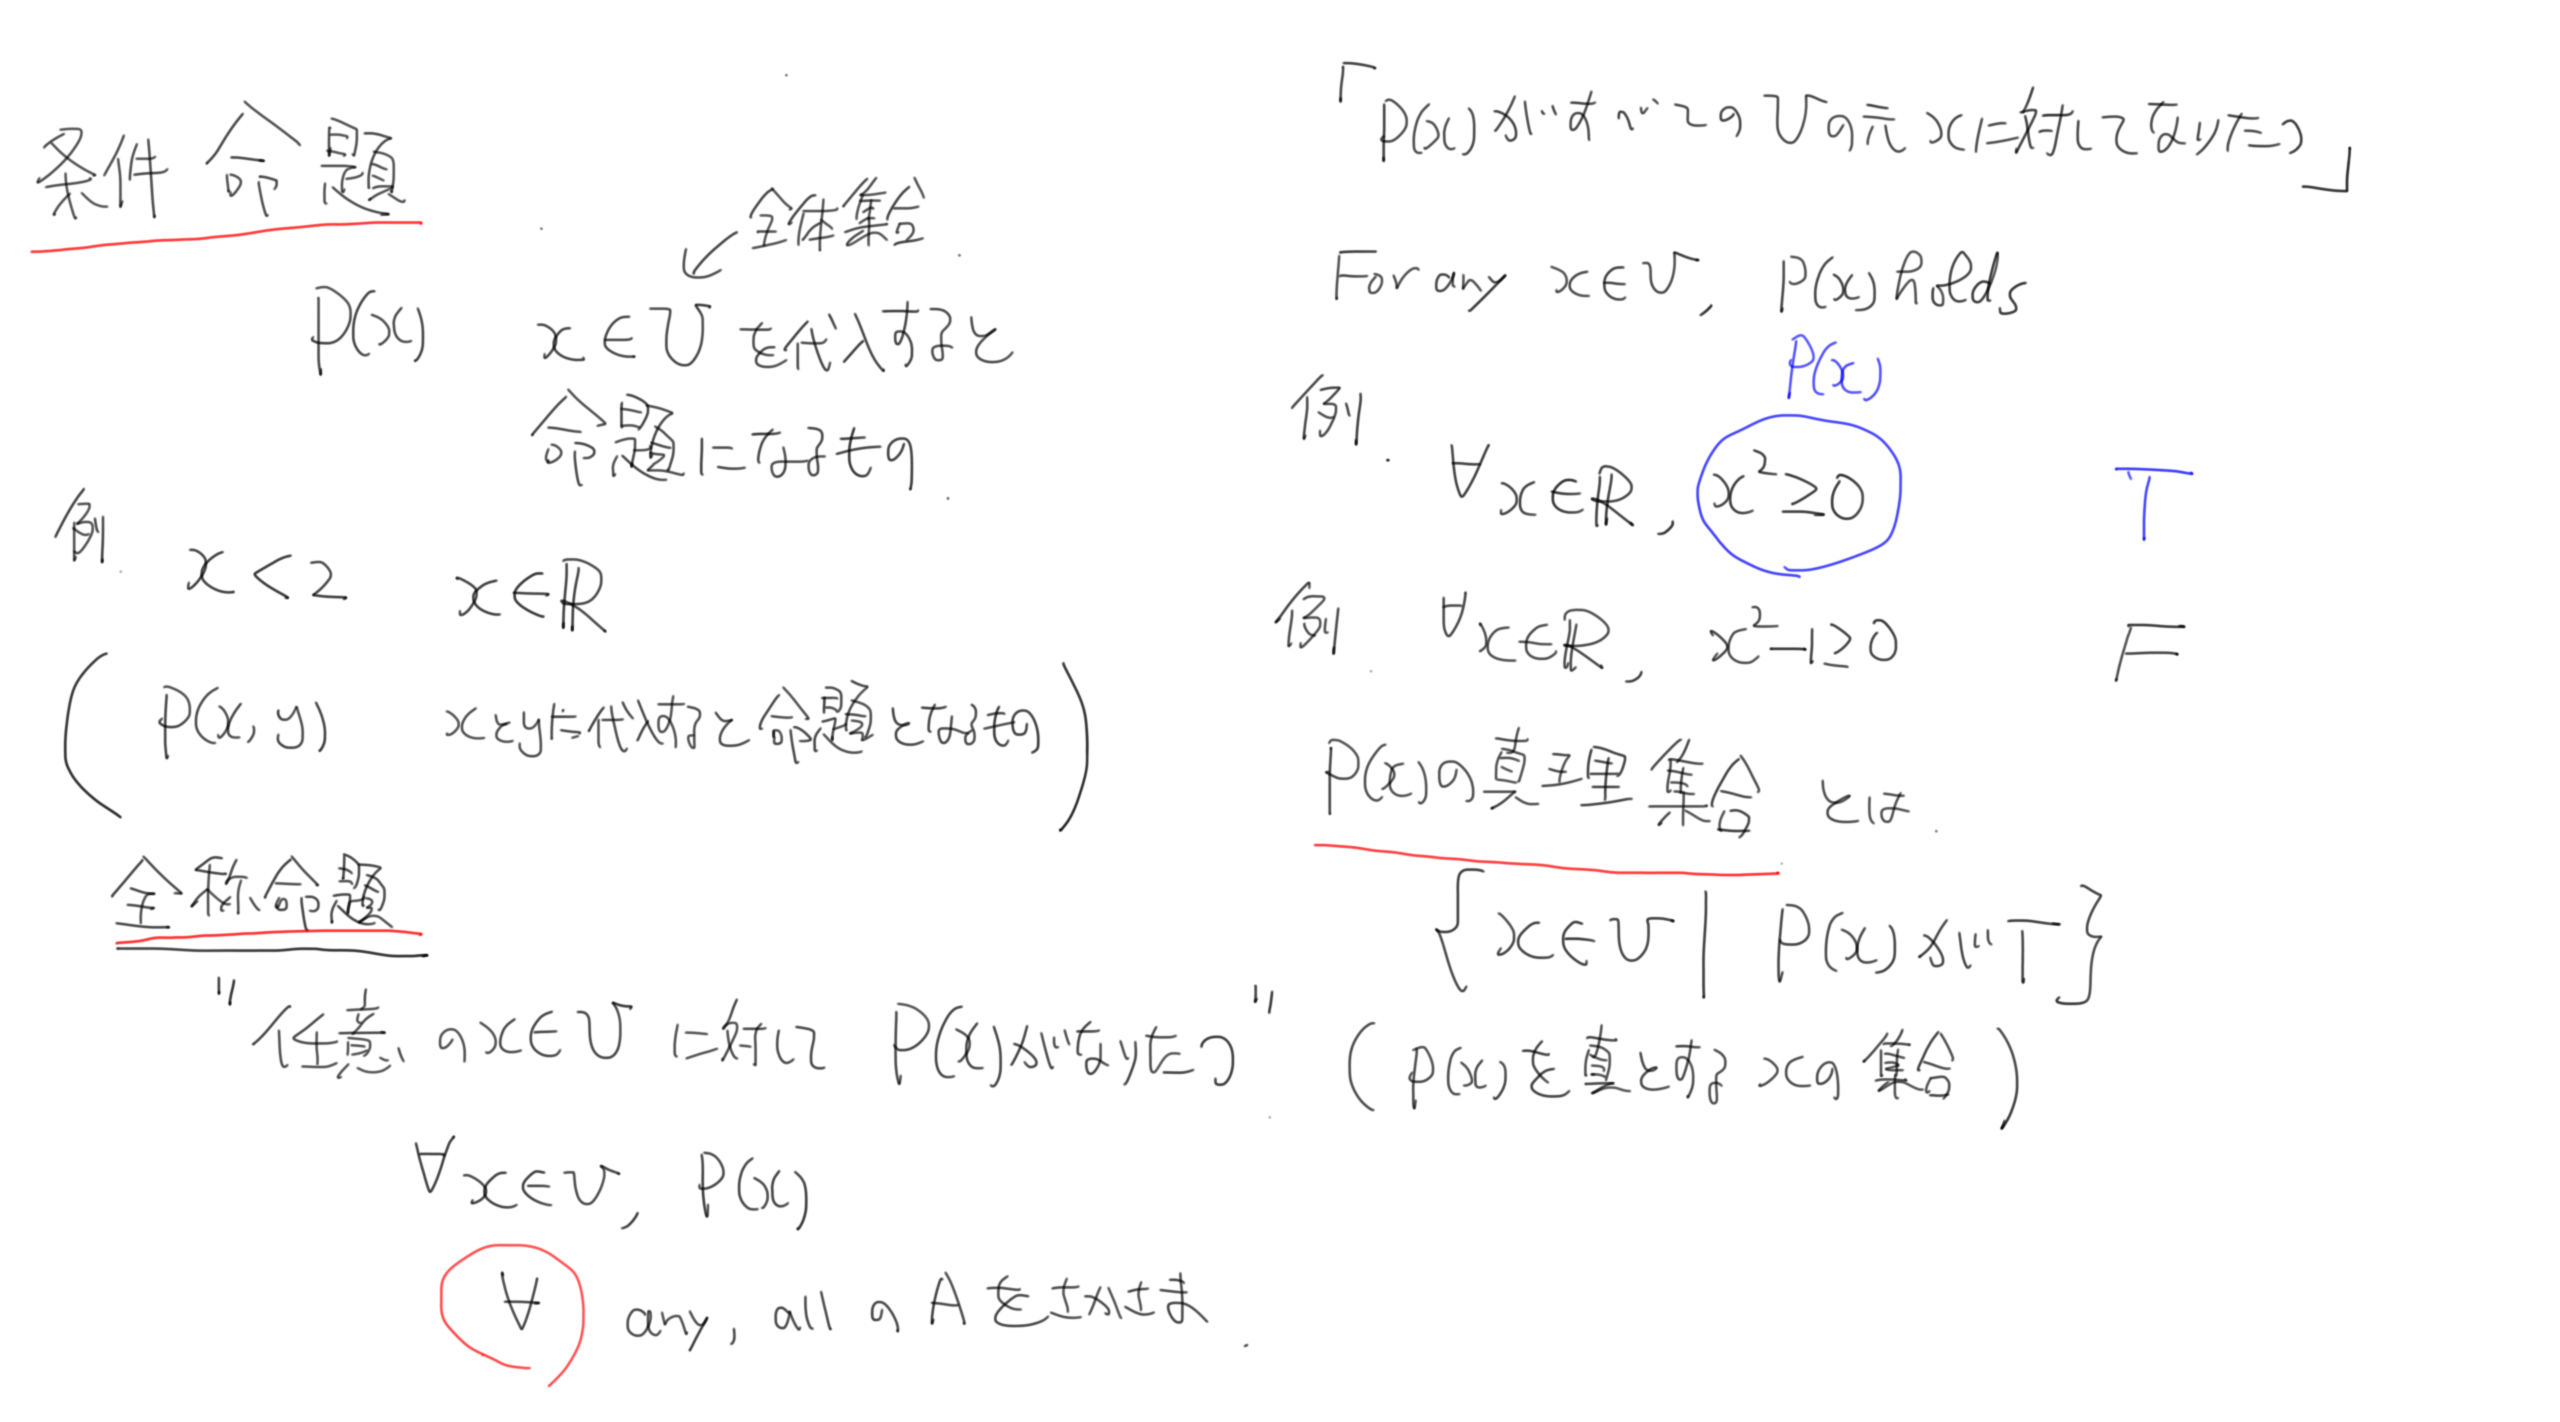 条件命題
全体集合
P(x) x∈Uを代入すると
命題になるもの
例. x<2 x∈ℝ
(P(x,y) xとyに代入すると命題となるもの)
全称命題
"任意のx∈Uに対して P(x)がなりたつ"
∀x∈U, P(x)
∀ any, all の A をさかさま.
「P(x)がすべてのUの元xに対してなりたつ」
For any x∈U, P(x) holds
P(x)
例. ∀x∈ℝ, x²≥0 T
例. ∀x∈ℝ, x²-1≥0 F
P(x)の真理集合とは.
{x∈U| P(x)がT}
(P(x)を真とするxの集合)